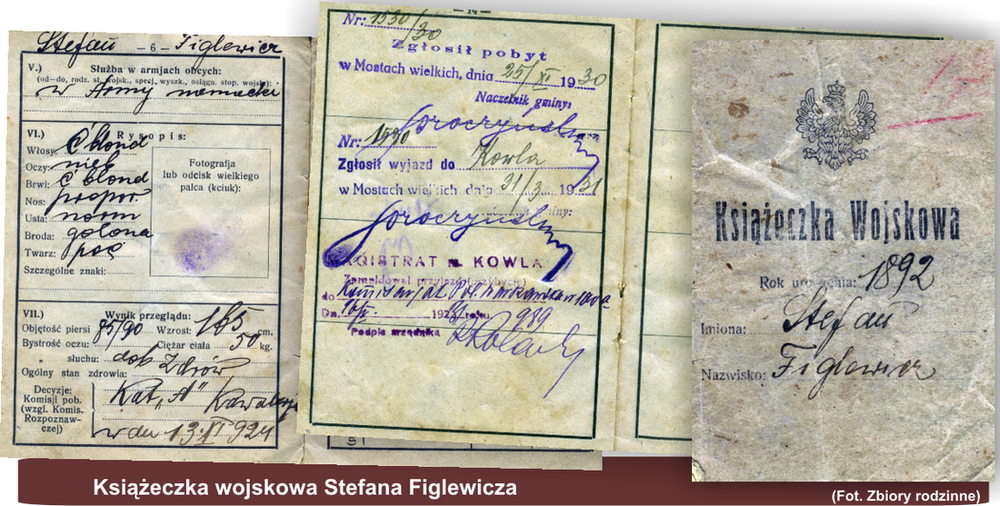 Stefan — 6 — Figlewicz
V.) Służba w armjach obcych:
(od—do, rodz. sł. wojsk., specj. wyszk., osiągn. stop. wojsk.)
w Army niemiecki
VI.) Rysopis:
Włosy: c blond
Oczy: nieb
Brwi: c blond
Nos: propor.
Usta: norm
Broda: golona
Twarz: poc
Szczególne znaki:
Fotografja
lub odcisk wielkiego
palca (kciuk):
VII.) Wynik przeglądu:
Objętość piersi 85/90 Wzrost: 165 cm.
Bystrość oczu: Ciężar ciała 50 kg.
„ słuchu: dob
Ogólny stan zdrowia: Zdrów
Decyzje:
Komisji pob.
(wzgl. Komis.
Rozpoznaw-
czej)
Kat „A" Kawalerja
w dn 13.VI 924
— 14 —
Nr: 1530/30
Zgłosił pobyt
w Mostach wielkich, dnia 25/XI 1930
Naczelnik gminy:
Nr: 1530
Zgłosił wyjazd do Kowla
w Mostach wielkich, dnia 31/3 1931
Naczelnik gminy:
MAGISTRAT m. KOWLA
Zameldował przyjazd
do
Dn. 192 roku
Podpis urzędnika
Książeczka Wojskowa
Rok urodzenia: 1892
Imiona: Stefan
Nazwisko: Figlewicz
Książeczka wojskowa Stefana Figlewicza
(Fot. Zbiory rodzinne)